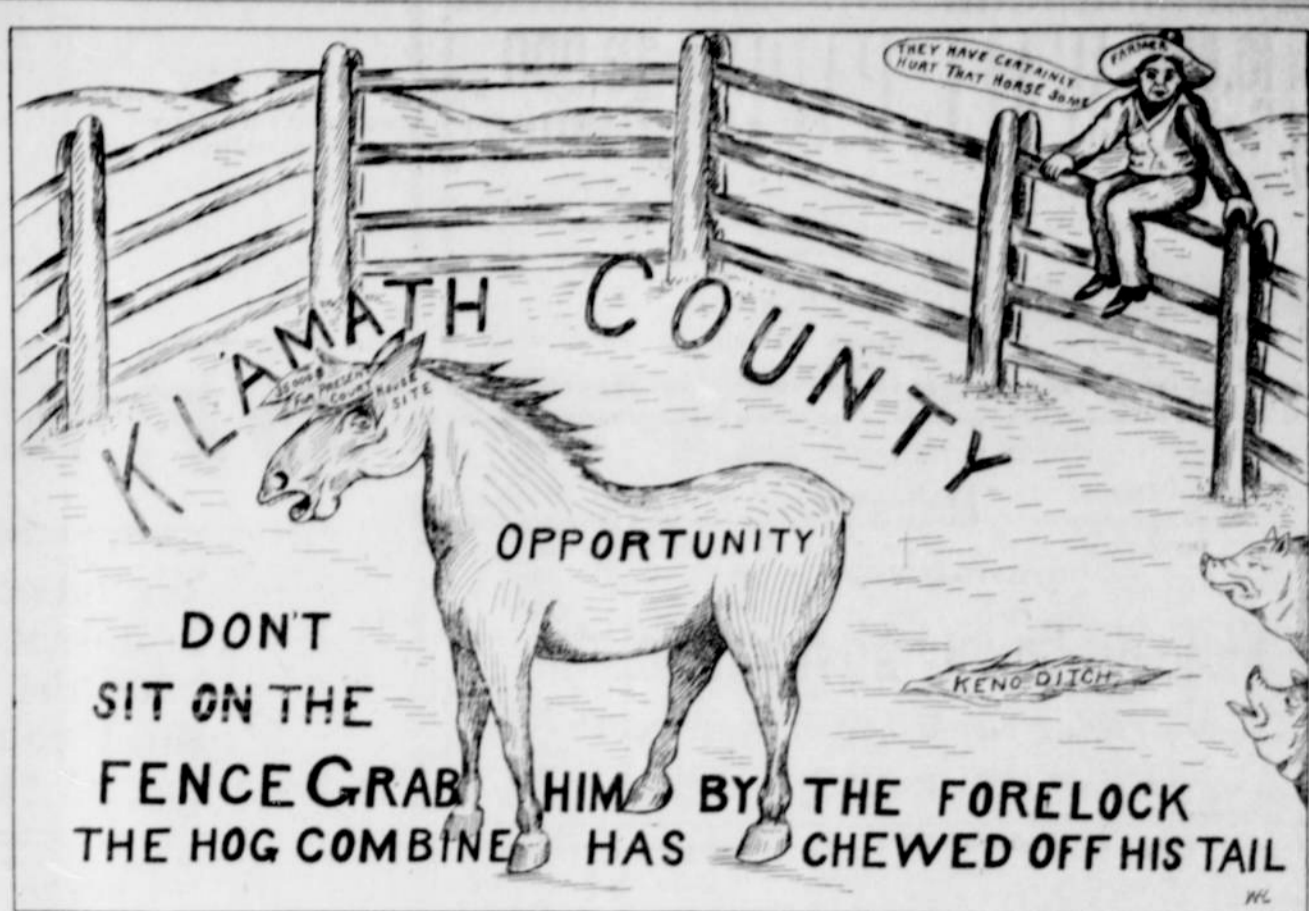 THEY HAVE CERTAINLY
HURT THAT HORSE SOME
FARMER
KLAMATH COUNTY
PRESENT
FOR COURT HOUSE
SITE
OPPORTUNITY
KENO DITCH
DON'T
SIT ON THE
FENCE GRAB HIM BY THE FORELOCK
THE HOG COMBINE HAS CHEWED OFF HIS TAIL